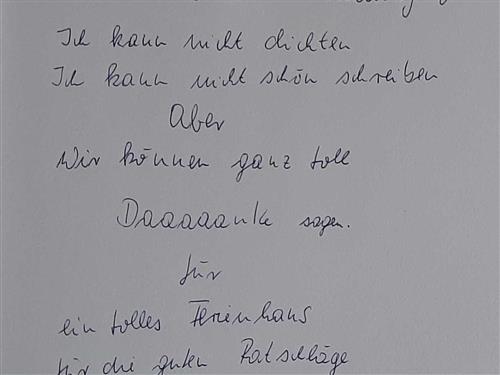 Ich kann nicht dichten
Ich kann nicht schön schreiben
Aber
Wir können ganz toll
Daaaaaanke sagen.
für
ein tolles Ferienhaus
für die guten Ratschläge